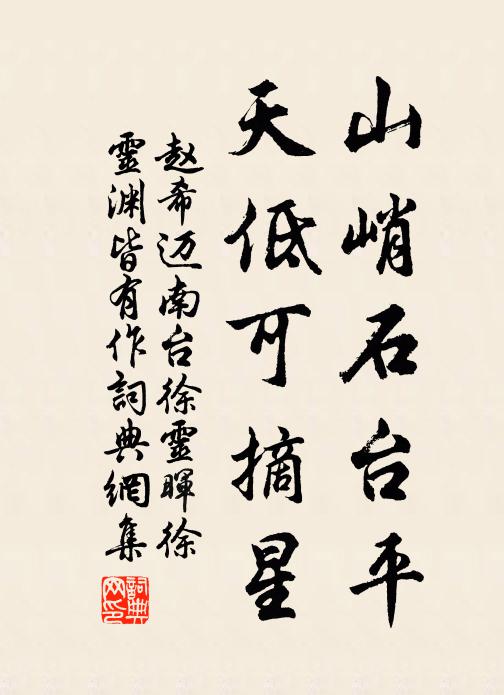 山峭石台平
天低可摘星
赵希迈南台徐靈暉徐
靈渊皆有作詞典網集
詞典网印